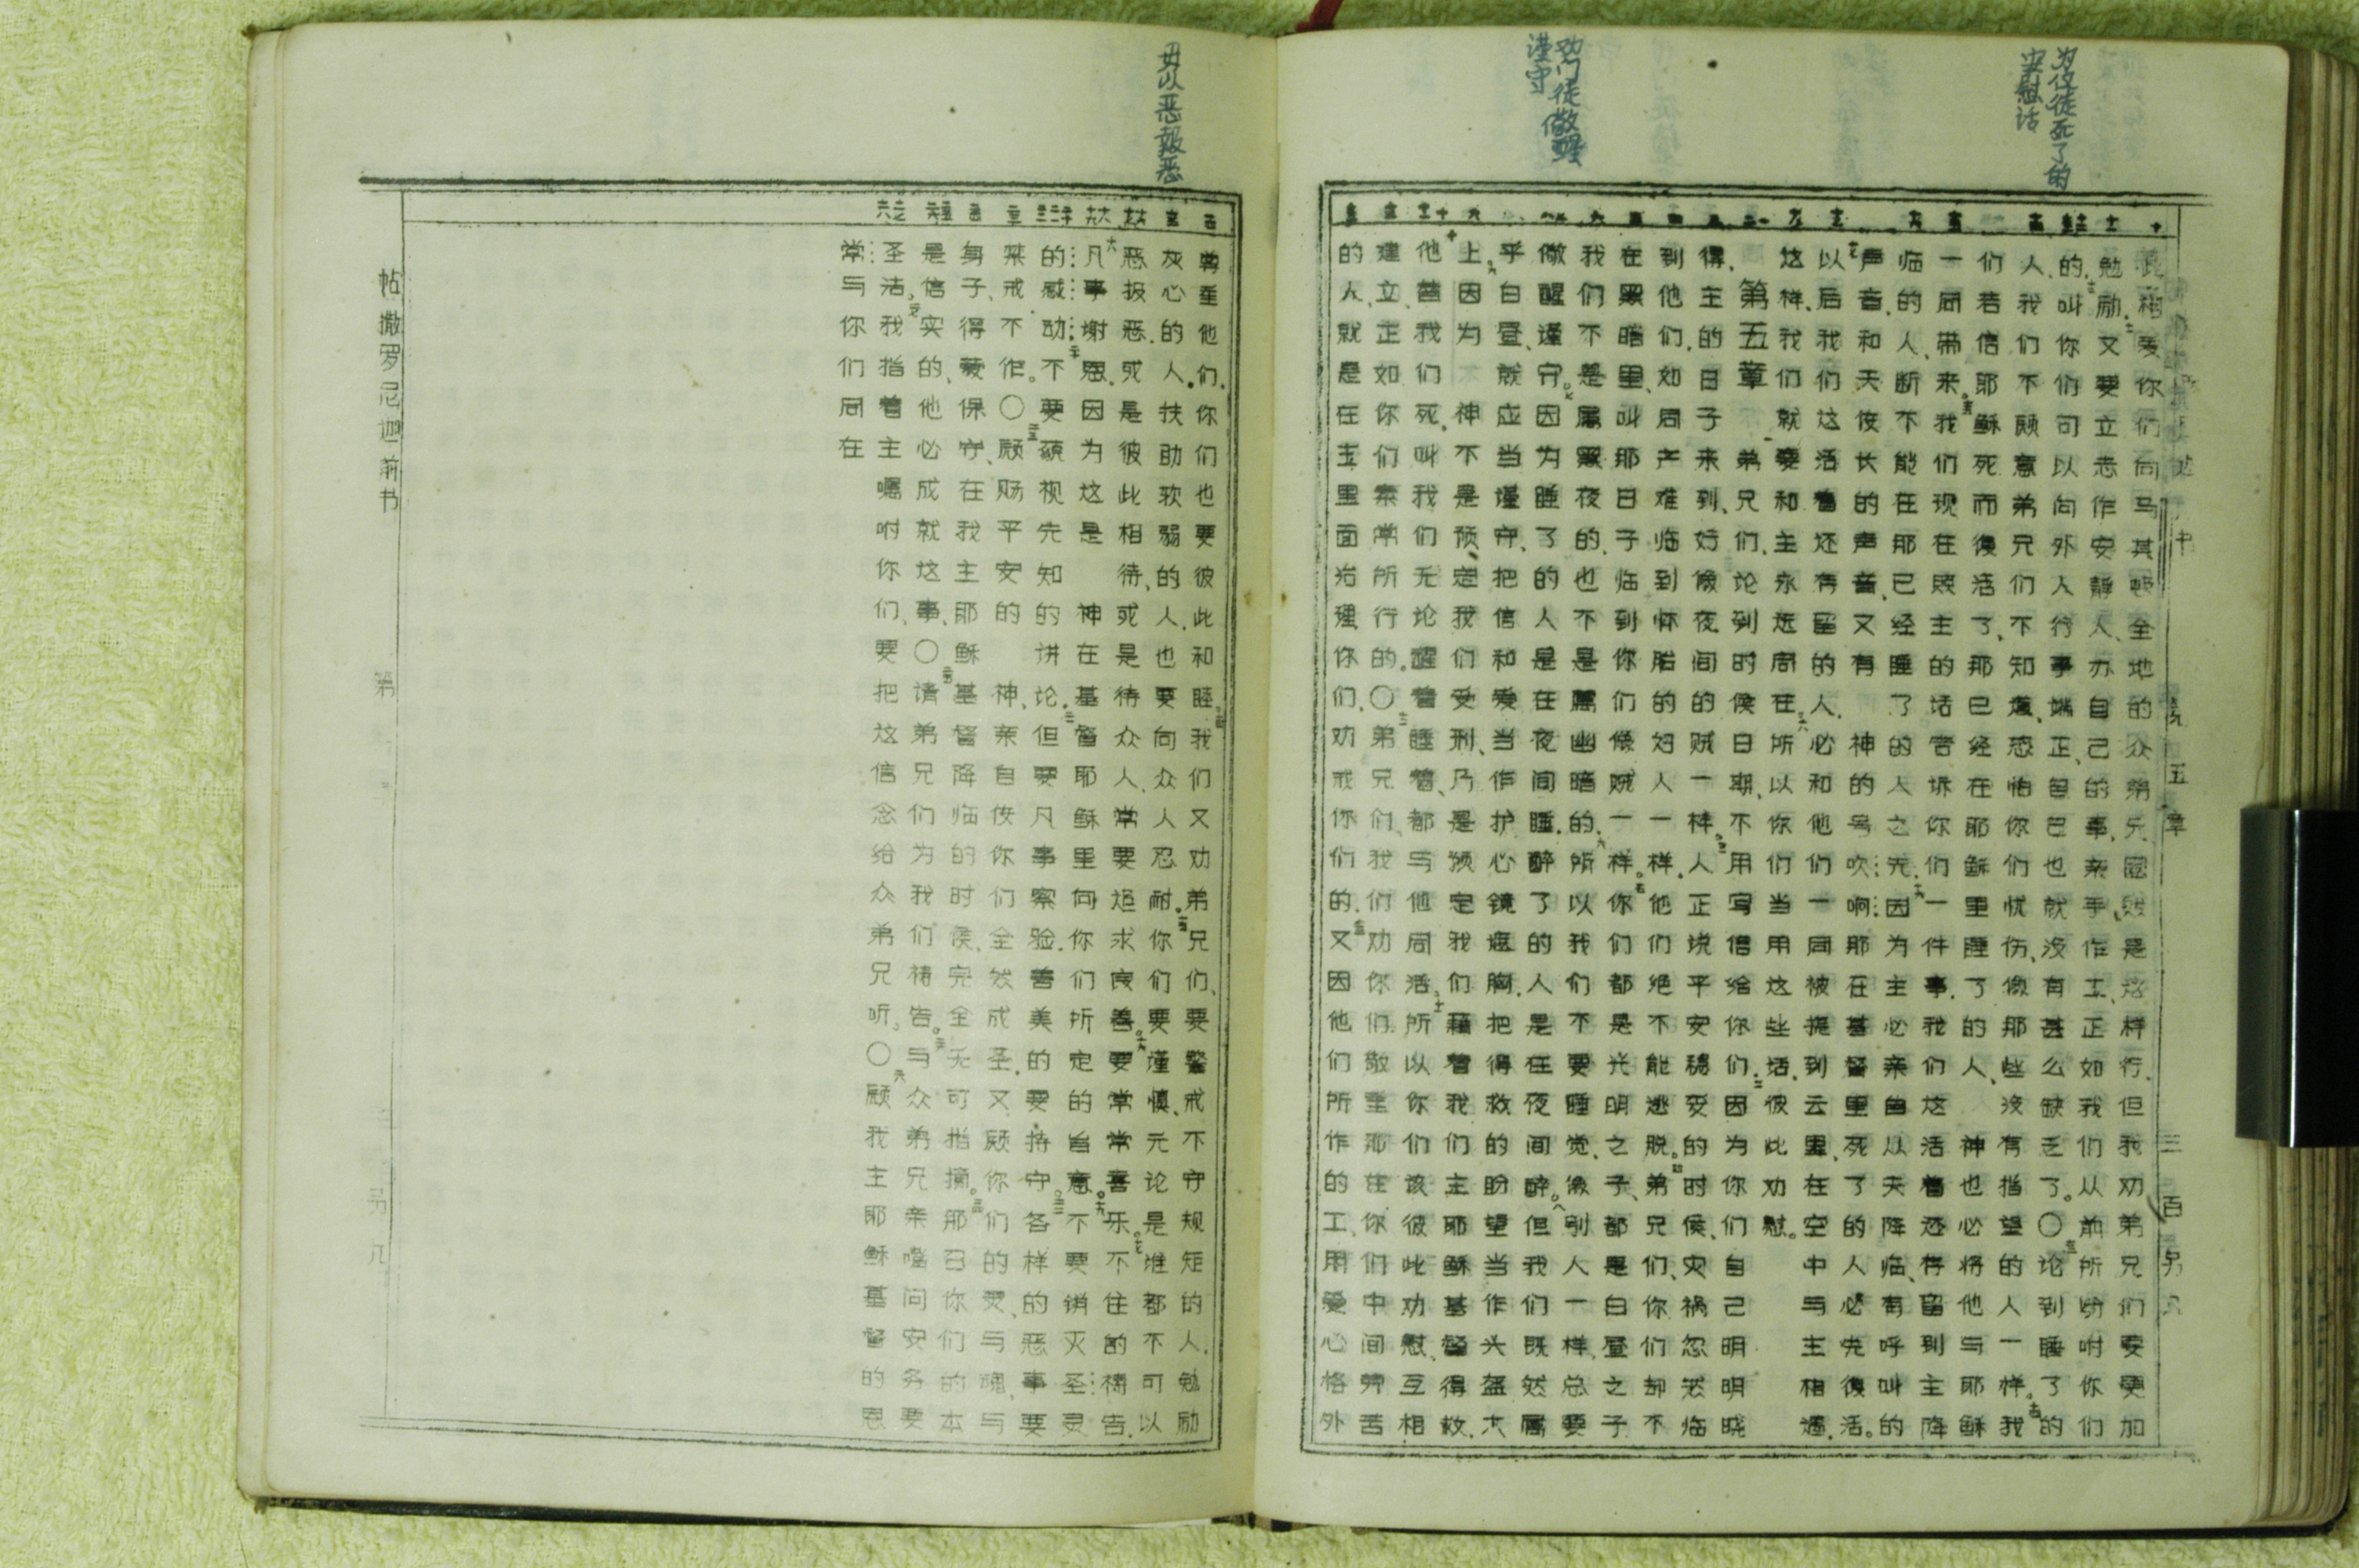 为使徒死了的
安慰话
劝门徒儆醒
谨守
此相爱你们向马其顿全地的众弟兄固然是这样行.但我劝弟兄们要更加
勉励.又要立志作安静人、办自己的事、亲手作工、正如我们从前所吩咐你们
的、叫你们可以向外人行事端正、自己也就没有甚么缺乏了。〇论到睡了的
人、我们不愿意弟兄们不知道、恐怕你们忧伤、像那些没有指望的人一样。我
们若信耶稣死而復活了、那已经在耶稣里睡了的人、神也必将他与耶稣
一同带来。我们现在照主的话告诉你们一件事.我们这活着还存留到主降
临的人、断不能在那已经睡了的人之先.因为主必亲自从天降临、有呼叫的
声音、和天使长的声音、又有神的号吹响.那在基督里死了的人必先復活。
以后我们这活着还存留的人、必和他们一同被提到云里、在空中与主相遇.
这样、我们就要和主永远同在.所以你们当用这些话、彼此劝慰。
第五章 弟兄们、论到时候日期、不用写信给你们.因为你们自己明明晓
得.主的日子来到、好像夜间的贼一样。人正说平安稳妥的时候、灾祸忽然临
到他们.如同产难临到怀胎的妇人一样.他们绝不能逃脱。弟兄们、你们却不
在黑暗里、叫那日子临到你们像贼一样。你们都是光明之子、都是白昼之子
我们不是属黑夜的、也不是属幽暗的.所以我们不要睡觉、像别人一样、总要
儆醒谨守。因为睡了的人是在夜间睡.醉了的人是在夜间醉。但我们既然属
乎白昼、就应当谨守、把信和爱当作护心镜遮胸.把得救的盼望当作头盔大
上.因为 神不是预定我们受刑、乃是预定我们藉着我们主耶稣基督得救.
他替我们死、叫我们无论醒着睡着、都与他同活.所以你们该彼此劝慰、互相
建立、正如你们素常所行的.〇弟兄们、我们劝你们敬重那在你们中间劳苦
的人、就是在主里面治理你们、劝戒你们的.又因他们所作的工、用爱心格外
毋以恶報恶
尊重他们.你们也要彼此和睦.我们又劝弟兄们、要警戒不守规矩的人.勉励
灰心的人.扶助软弱的人.也要向众人忍耐。你们要谨慎、无论是谁都不可以
恶报恶.或是彼此相待、或是待众人、常要追求良善。要常常喜乐。不住的祷告.
凡事谢恩.因为这是 神在基督耶稣里向你们所定的旨意。不要销灭圣灵
的感动.不要藐视先知的讲论.但要凡事察验.善美的要持守。各样的恶事要
禁戒不作。〇愿赐平安的 神、亲自使你们全然成圣.又愿你们的灵、与魂、与
身子、得蒙保守、在我主耶稣基督降临的时候、完全无可指摘。那召你们的本
是信实的、他必成就这事、〇请弟兄们为我们祷告。与众弟兄亲嘴问安务要
圣洁。我指着主嘱咐你们、要把这信念给众弟兄听。〇愿我主耶稣基督的恩
常与你们同在
帖撒罗尼迦前书